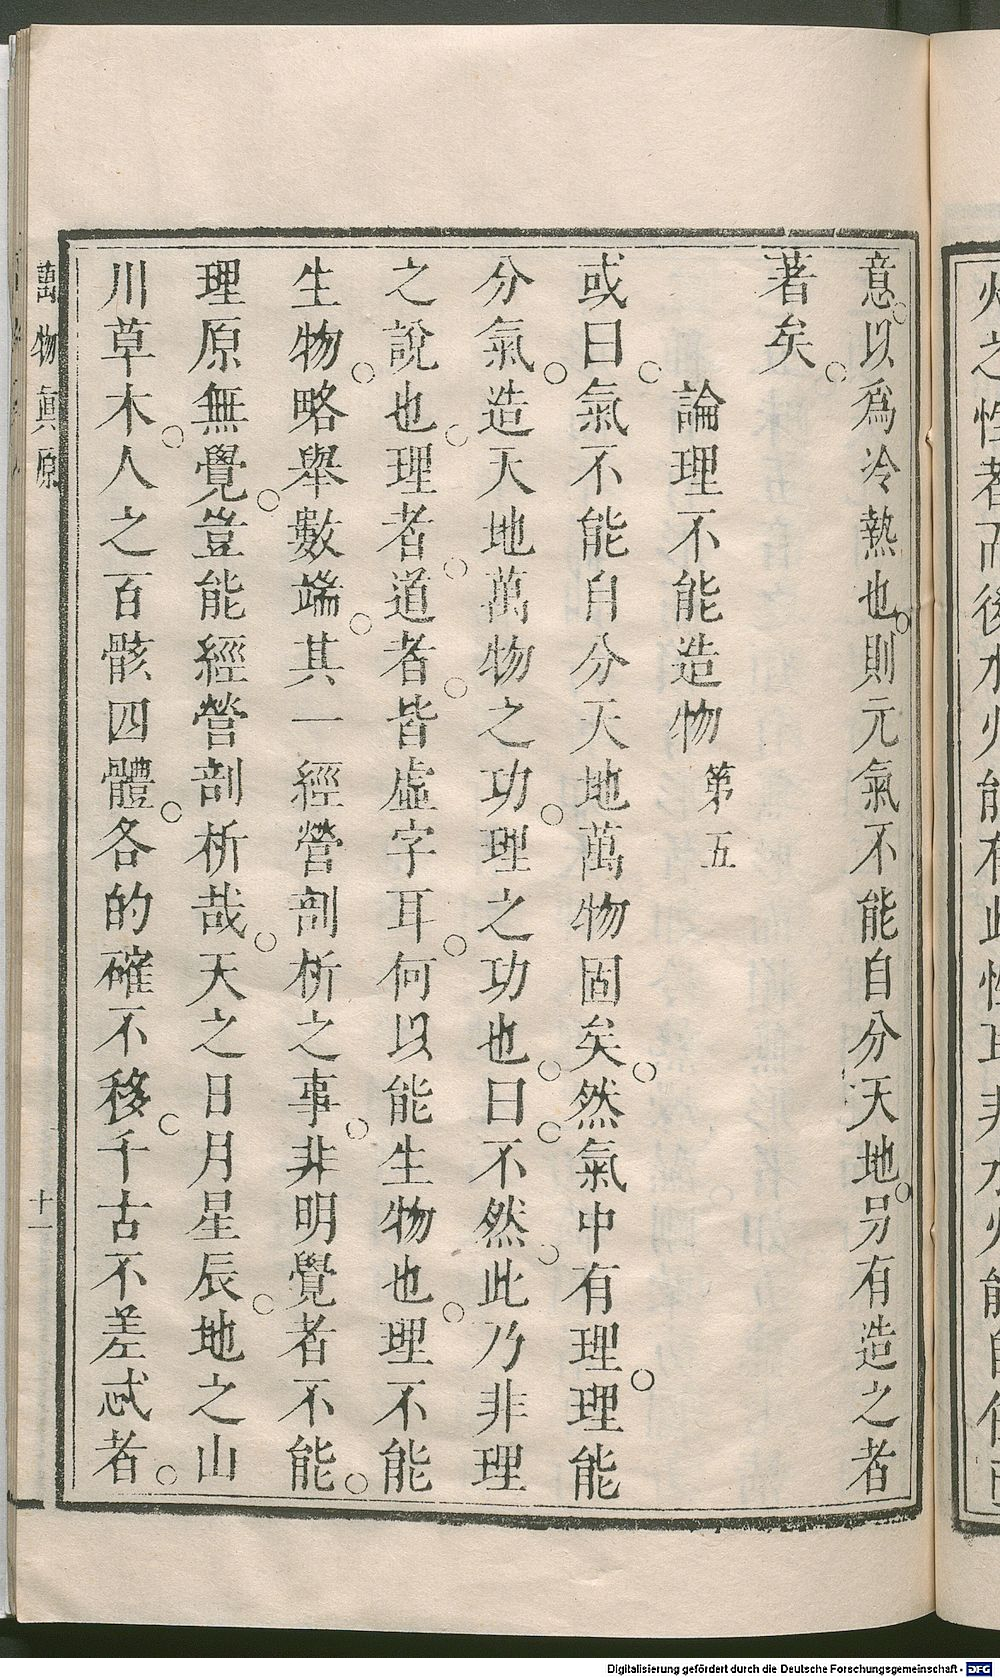 意。以爲冷熱也。則元氣不能自分天地。另有造之者
著矣。
論理不能造物 第五
或曰。氣不能自分天地萬物固矣。然氣中有理。理能
分氣。造天地萬物之功。理之功也。曰。不然。此乃非理
之說也。理者。道者。皆虛字耳。何以能生物也。理不能
生物。略舉數端。其一經營剖析之事。非明覺者不能。
理原無覺。豈能經營剖析哉。天之日月星辰。地之山
川草木。人之百骸四體。各的確不移。千古不差忒者。
萬物眞原
十一